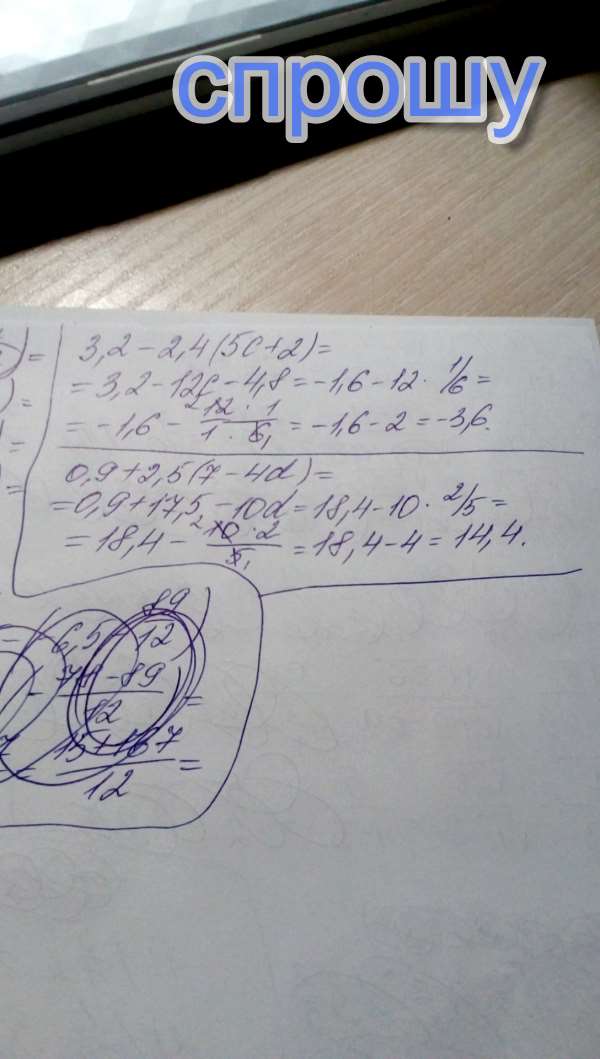 спрошу
3,2 - 2,4(5c+2) =
= 3,2 - 12c - 4,8 = -1,6 - 12 · 1/6 =
= -1,6 - 12 · 1 / 1 · 6 = -1,6 - 2 = -3,6.
0,9 + 2,5(7 - 4d) =
= 0,9 + 17,5 - 10d = 18,4 - 10 · 2/5 =
= 18,4 - 10 · 2 / 5 = 18,4 - 4 = 14,4.
89
6,5 12
89
12
12 =